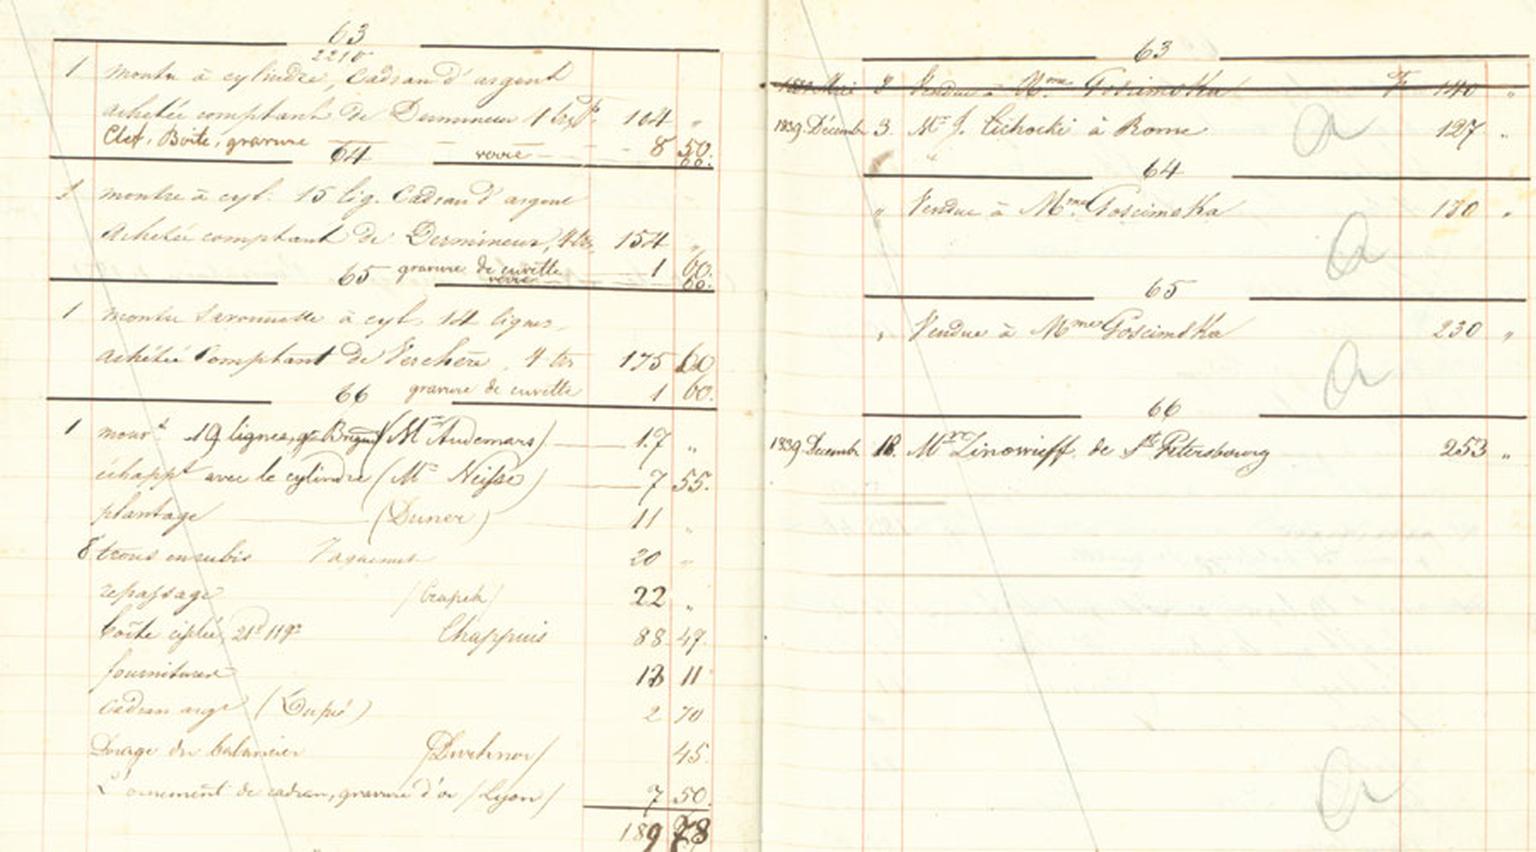 63
2210
1 montre à cylindre, Cadran d'argent
achetée comptant de Dermineur 104 "
Clef, Boite, gravure 8 50.
64
1 montre à cyl. 15 lig. Cadran d'argent
Achetée comptant de Dermineur, 154 "
gravure de cuvette 1 60.
65
1 montre Savonnette à cyl. 14 lignes
achétée Comptant de Verchère 175 60
gravure de cuvette 1 60.
66
1 mouvt 19 lignes, (Mr Audemars) 17 "
échappt avec le cylindre (Mr ) 7 55.
plantage (Duner) 11 "
8 trous en rubis 20 "
repassage 22 "
boîte Chappuis 88 47.
fournitures 11
Cadran argt (Dupré) 2 70
Dorage du balancier 45.
L'ornement de cadran, gravure d'or (Lyon) 7 50.
189 78
63
Vendue à Mme Goscimska F 140 "
1839 Décemb 3. Mr J. Cichocki à Rome 127 "
64
" Vendue à Mme Goscimska "
65
Vendue à Mme Goscimska 230 "
66
1839 Decemb 18. Zinowieff. de St Petersbourg 253 "